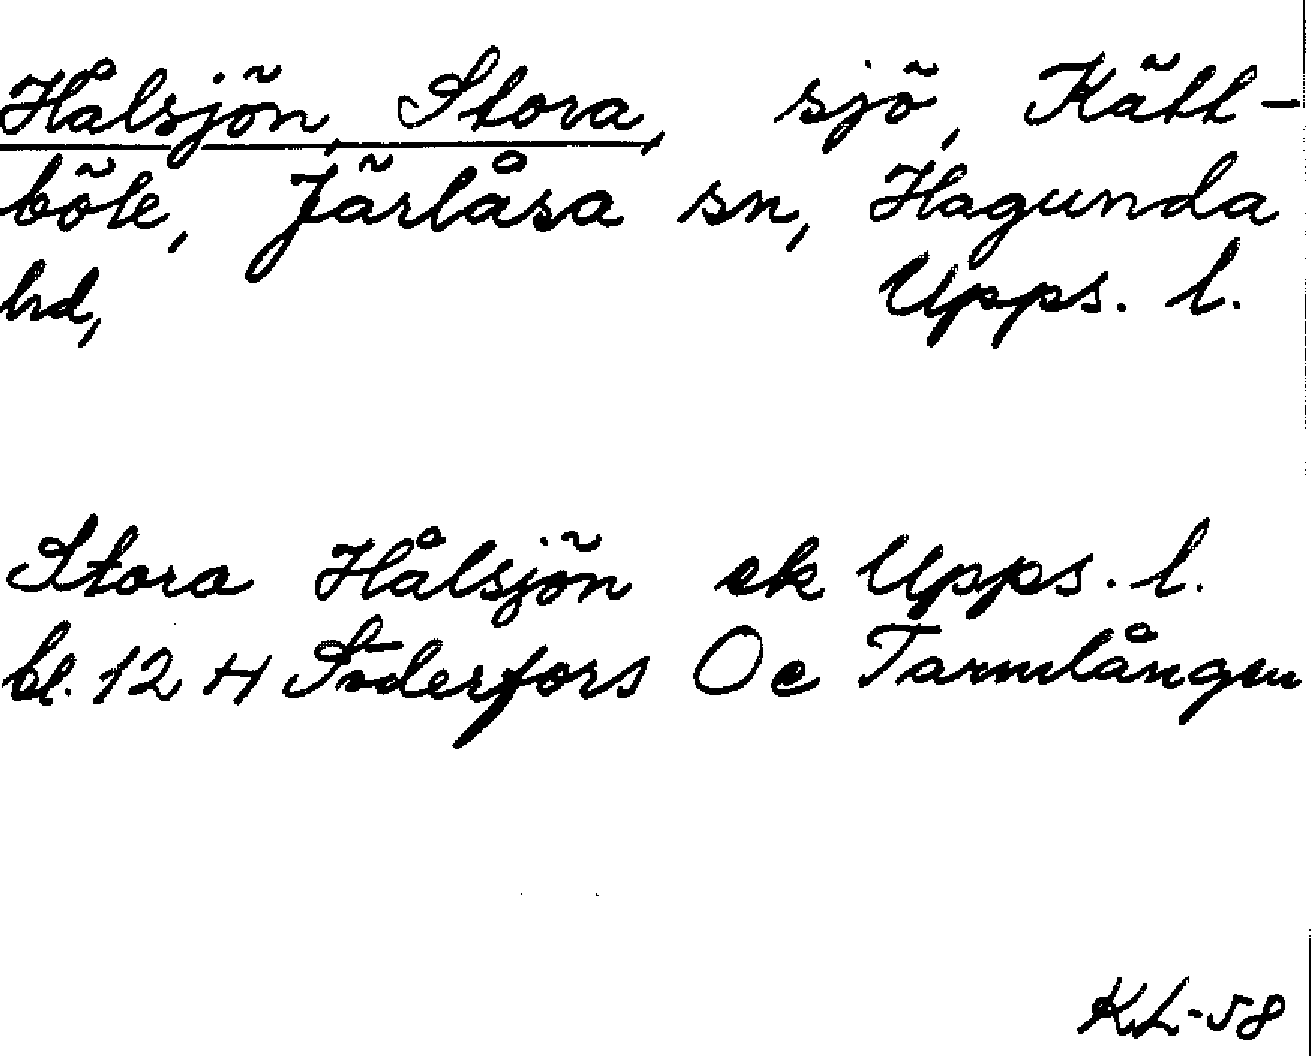 Hålsjön, Stora, sjö, Kätt-
böle, Järlåsa sn, Hagunda
hd, Upps. l.
Stora Hålsjön ek Upps. l.
bl. 12 H Söderfors Oe Tarmlången
KL-58